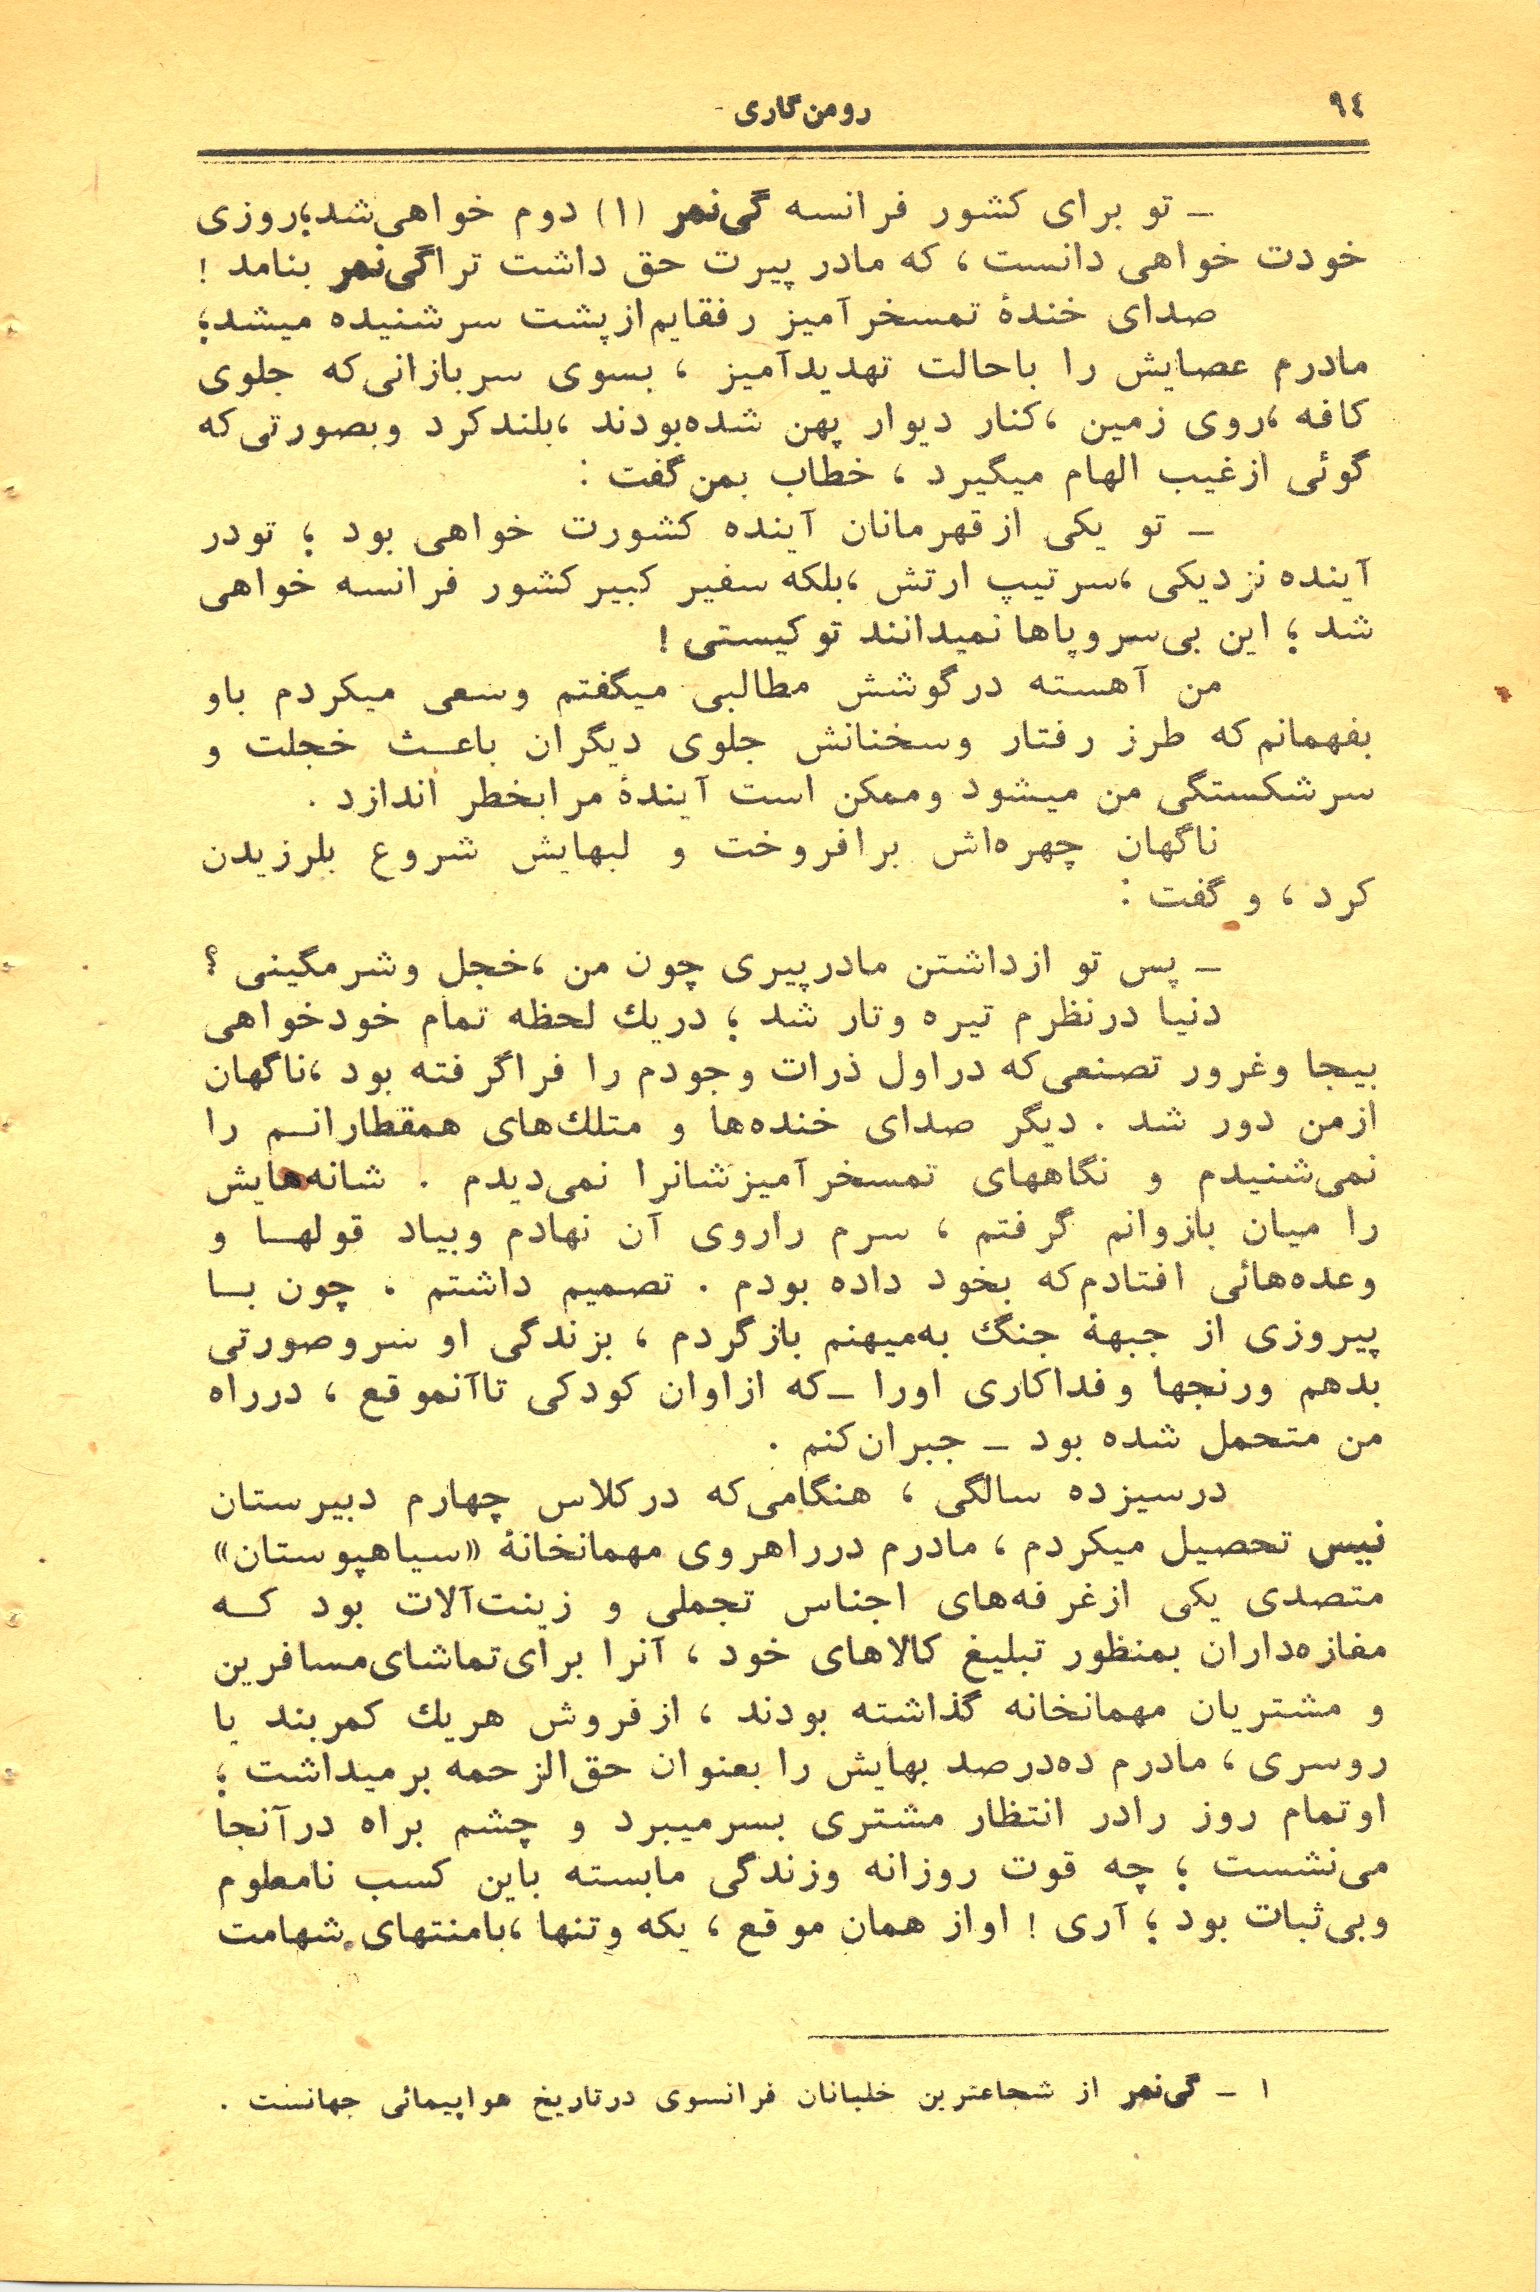 ۹٤
رومن‌گاری
ـ تو برای کشور فرانسه گی‌نمر (۱) دوم خواهی‌شد؛روزی
خودت خواهی دانست، که مادر پیرت حق داشت تراگی‌نمر بنامد !
صدای خندهٔ تمسخرآمیز رفقایم‌ازپشت سرشنیده میشد؛
مادرم عصایش را باحالت تهدیدآمیز ، بسوی سربازانی‌که جلوی
کافه ،روی زمین ،کنار دیوار پهن شده‌بودند ،بلندکرد وبصورتی‌که
گوئی ازغیب الهام میگیرد ، خطاب بمن‌گفت :
ـ تو یکی ازقهرمانان آینده کشورت خواهی بود ؛ تودر
آینده نزدیکی ،سرتیپ ارتش ،بلکه سفیر کبیرکشور فرانسه خواهی
شد ؛ این بی‌سروپاها نمیدانند توکیستی !
من آهسته درگوشش مطالبی میگفتم وسعی میکردم باو
بفهمانم‌که طرز رفتار وسخنانش جلوی دیگران باعـث خجلت و
سرشکستگی من میشود وممکن است آیندهٔ مرابخطر اندازد .
ناگهان چهره‌اش برافروخت و لبهایش شروع بلرزیدن
کرد ، و گفت :
ـ پس تو ازداشتن مادرپیری چون من ،خجل وشرمگینی ؟
دنیا درنظرم تیره وتار شد ؛ دریك لحظه تمام خودخواهی
بیجا وغرور تصنعی‌که دراول ذرات وجودم را فراگرفته بود ،ناگهان
ازمن دور شد . دیگر صدای خنده‌ها و متلك‌های همقطارانـم را
نمی‌شنیدم و نگاههای تمسخرآمیزشانرا نمی‌دیدم . شانه‌هایش
را میان بازوانم گرفتم ، سرم راروی آن نهادم وبیاد قولهـا و
وعده‌هائی افتادم‌که بخود داده بودم . تصمیم داشتم . چون بـا
پیروزی از جبههٔ جنگ به‌میهنم بازگردم ، بزندگی او سروصورتی
بدهم ورنجها وفداکاری اورا ـ‌که ازاوان کودکی تاآنموقع ، درراه
من متحمل شده بود ـ جبران‌کنم .
درسیزده سالگی ، هنگامی‌که درکلاس چهارم دبیرستان
نیس تحصیل میکردم ، مادرم درراهروی مهمانخانهٔ «سیاهپوستان»
متصدی یکی ازغرفه‌های اجناس تجملی و زینت‌آلات بود کـه
مغازه‌داران بمنظور تبلیغ کالاهای خود ، آنرا برای‌تماشای‌مسافرین
و مشتریان مهمانخانه گذاشته بودند ، ازفروش هریك کمربند یا
روسری ، مادرم ده‌درصد بهایش را بعنوان حق‌الزحمه برمیداشت ؛
اوتمام روز رادر انتظار مشتری بسرمیبرد و چشم براه درآنجا
می‌نشست ؛ چه قوت روزانه وزندگی مابسته باین کسب نامعلوم
وبی‌ثبات بود ؛ آری ! اواز همان موقع ، یکه وتنها ،بامنتهای شهامت
۱ ـ گی‌نمر از شجاعترین خلبانان فرانسوی درتاریخ هواپیمائی جهانست .